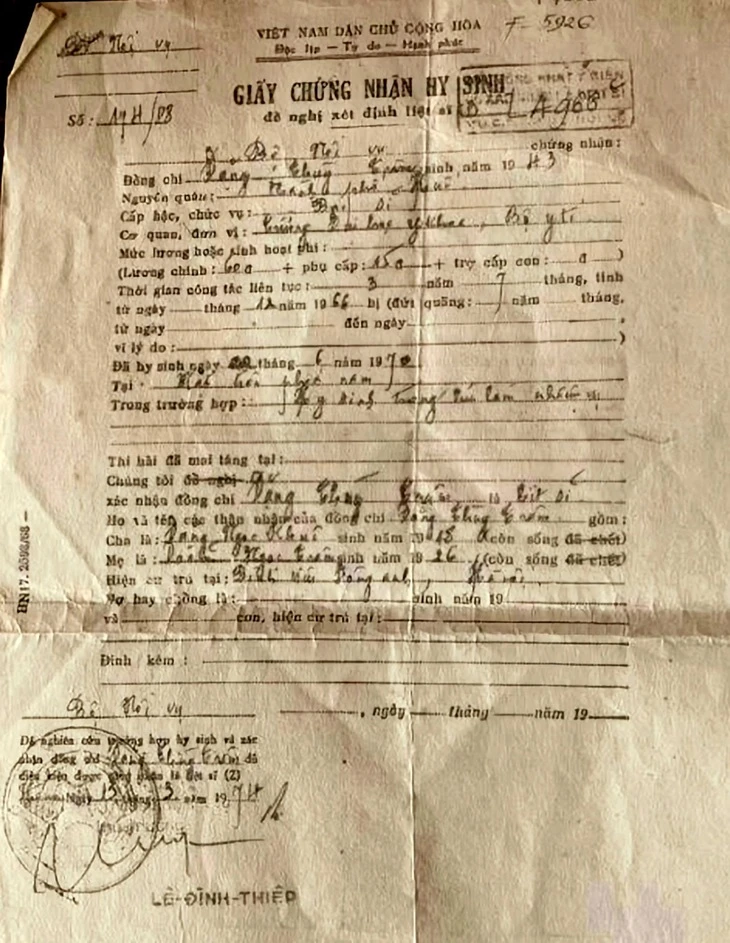 Bộ Nội vụ
VIỆT NAM DÂN CHỦ CỘNG HÒA
F 5926
Độc lập — Tự do — Hạnh phúc
GIẤY CHỨNG NHẬN HY SINH
Số: 19H/08
đề nghị xét định liệt sĩ
Bộ Nội vụ chứng nhận:
Đồng chí Đặng Thùy Trâm sinh năm 1943
Nguyên quán: Thành phố Huế
Cấp bậc, chức vụ:
Cơ quan, đơn vị: Trường Đại học y khoa, Bộ y tế
Mức lương hoặc sinh hoạt phí:
(Lương chính: 60đ + phụ cấp: + trợ cấp con: đ )
Thời gian công tác liên tục: 3 năm 7 tháng, tính
từ ngày tháng 12 năm 1966 bị (đứt quãng: năm tháng,
từ ngày đến ngày
vì lý do: )
Đã hy sinh ngày tháng 6 năm 1970
Tại: phía nam
Trong trường hợp: Hy sinh trong lúc làm nhiệm vụ
Thi hài đã mai táng tại:
Chúng tôi đề nghị
xác nhận đồng chí Đặng Thùy Trâm là liệt sĩ
Họ và tên các thân nhân của đồng chí Đặng Thùy Trâm gồm:
Cha là: Đặng Ngọc Khuê sinh năm 19 (còn sống đã chết)
Mẹ là: Doãn Ngọc Trâm sinh năm 1926 (còn sống đã chết)
Hiện cư trú tại: Đông Anh, Hà Nội
Vợ hay chồng là: sinh năm 19
và con, hiện cư trú tại:
Đính kèm:
BN17. 2598/68 —
Bộ Nội vụ
, ngày tháng năm 19
Đã nghiên cứu trường hợp hy sinh và xác
nhận đồng chí Đặng Thùy Trâm đủ
điều kiện được công nhận là liệt sĩ (2)
ngày 13 tháng 3 năm 1974
LÊ-ĐÌNH-THIỆP